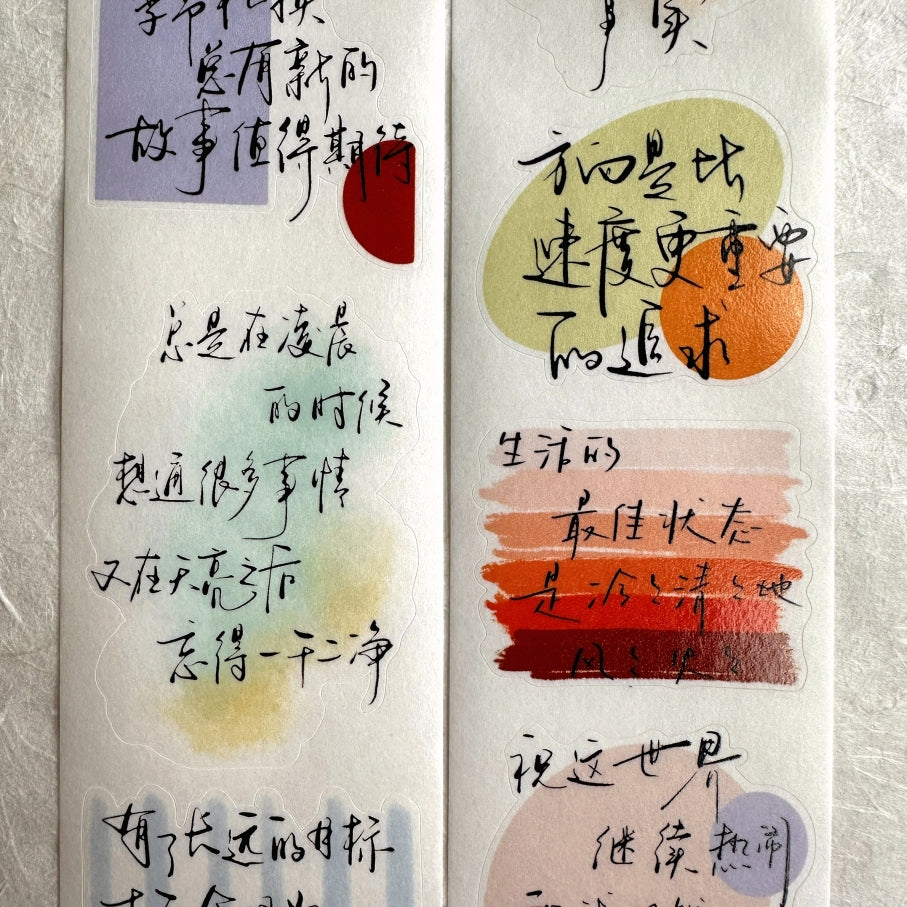 季节轮换
总有新的
故事值得期待
总是在凌晨
的时候
想通很多事情
又在天亮之后
忘得一干二净
有了长远的目标
事实
方向是比
速度更重要
的追求
生活的
最佳状态
是冷冷清清地
风风火火
祝这世界
继续热闹